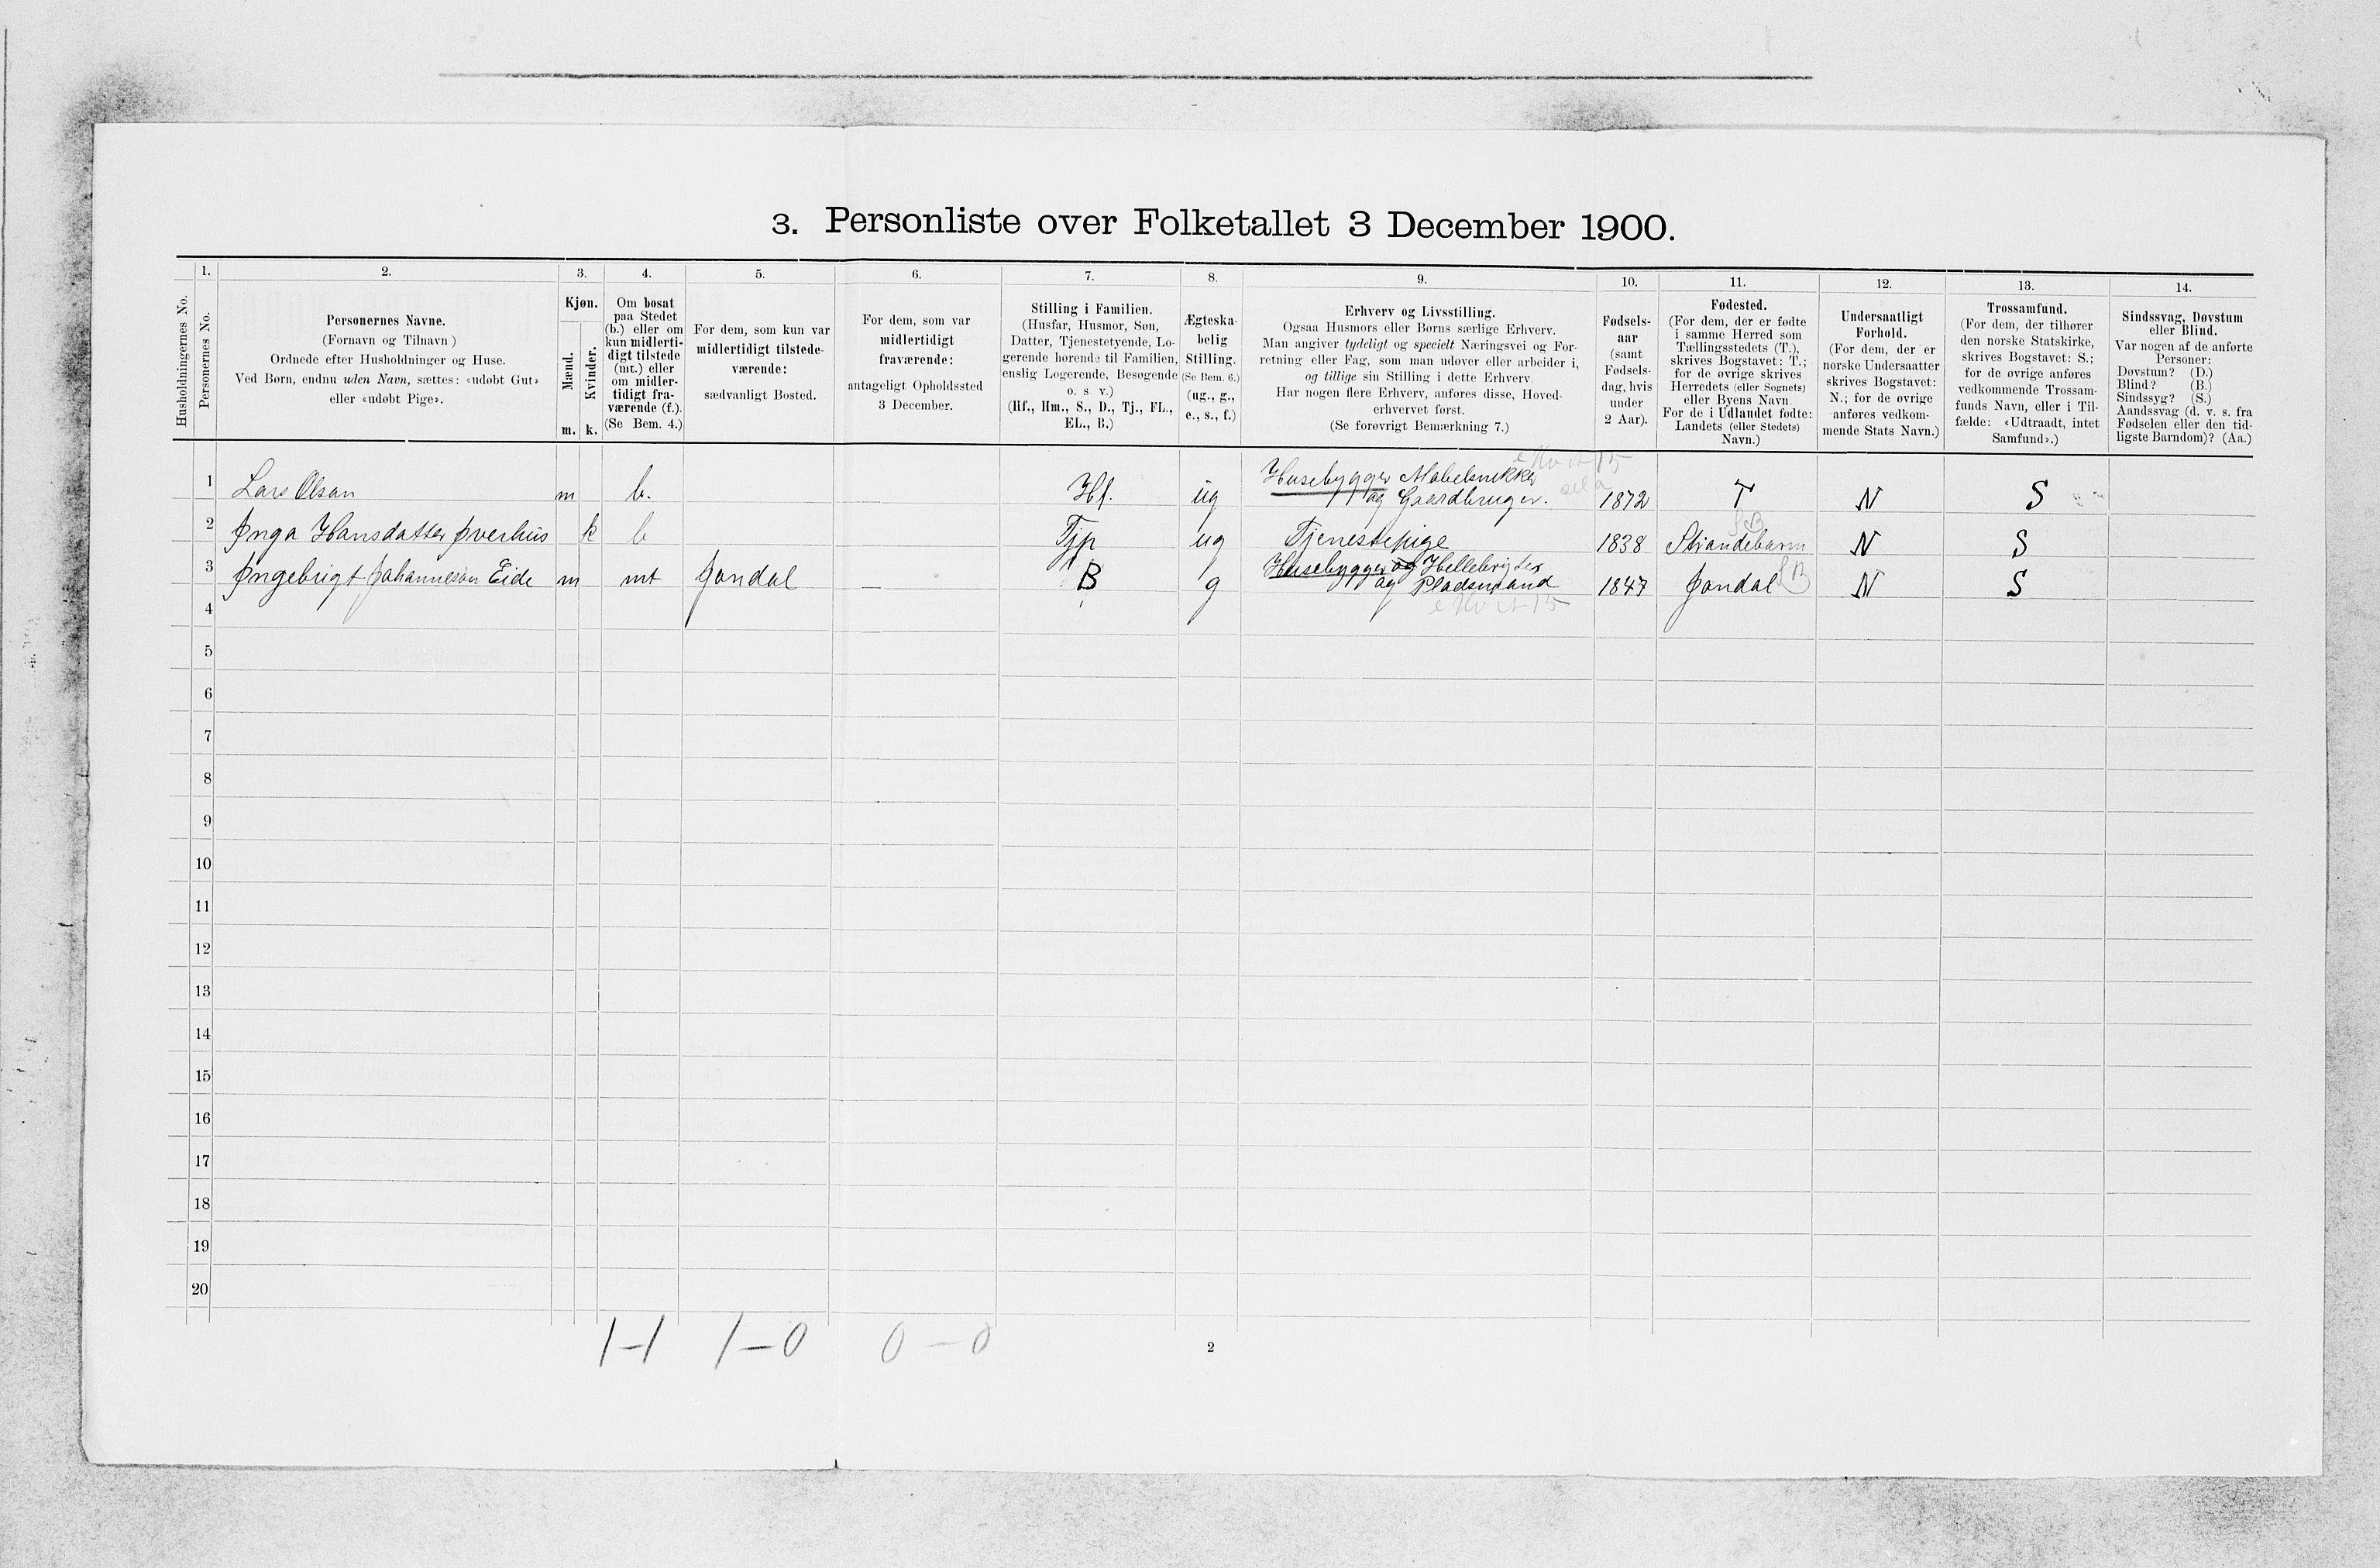 3. Personliste over Folketallet 3 December 1900.
1. 2. 3. 4. 5. 6. 7. 8. 9. 10. 11. 12. 13. 14.
Husholdningernes No.
Personernes No.
Personernes Navne.
(Fornavn og Tilnavn )
Ordnede efter Husholdninger og Huse.
Ved Børn, endnu uden Navn, sættes: «udøbt Gut»
eller «udøbt Pige».
Kjøn.
Mænd.
Kvinder.
m. k.
Om bosat
paa Stedet
(b.) eller om
kun midlerti-
digt tilstede
(mt.) eller
om midler-
tidigt fra-
værende (f.).
(Se Bem. 4.)
For dem, som kun var
midlertidigt tilstede-
værende:
sædvanligt Bosted.
For dem, som var
midlertidigt
fraværende:
antageligt Opholdssted
3 December.
Stilling i Familien.
(Husfar, Husmor, Søn,
Datter, Tjenestetyende, Lo-
gerende hørende til Familien,
enslig Logerende, Besøgende
o. s v.)
(Hf., Hm., S., D., Tj., FL.,
EL., B.)
Ægteska-
belig
Stilling.
(Se Bem. 6.)
(ug., g.,
e., s., f.)
Erhverv og Livsstilling.
Ogsaa Husmors eller Børns særlige Erhverv.
Man angiver tydeligt og specielt Næringsvei og For-
retning eller Fag, som man udøver eller arbeider i,
og tillige sin Stilling i dette Erhverv.
Har nogen flere Erhverv, anføres disse, Hoved-
erhvervet først.
(Se forøvrigt Bemærkning 7.)
Fødsels-
aar
(samt
Fødsels-
dag, hvis
under
2 Aar).
Fødested.
(For dem, der er fødte
i samme Herred som
Tællingsstedets (T.),
skrives Bogstavet: T.;
for de øvrige skrives
Herredets (eller Sognets)
eller Byens Navn.
For de i Udlandet fødte:
Landets (eller Stedets)
Navn.)
Undersaatligt
Forhold.
(For dem, der er
norske Undersaatter
skrives Bogstavet:
N.; for de øvrige
anføres vedkom-
mende Stats Navn.)
Trossamfund.
(For dem, der tilhører
den norske Statskirke,
skrives Bogstavet: S.;
for de øvrige anføres
vedkommende Trossam-
funds Navn, eller i Til-
fælde: «Udtraadt, intet
Samfund».)
Sindssvag, Døvstum
eller Blind.
Var nogen af de anførte
Personer:
Døvstum? (D.)
Blind? (B.)
Sindssyg? (S.)
Aandssvag (d. v. s. fra
Fødselen eller den tid-
ligste Barndom)? (Aa.)
1 Lars Olsan m b. Hf. ug Husebygger Møbelsnikker og Gaardbruger. 1872 T N S
2 Inga Hansdatter Øverhus k b Tjp ug Tjenestepige 1838 Strandebarm N S
3 Ingebrigt Johanneson Eide m mt Jondal B g Husebygger og Hellebrigter og Pladsmand 1847 Jondal N S
4
5
6
7
8
9
10
11
12
13
14
15
16
17
18
19
20
1-1 1-0 0-0
2